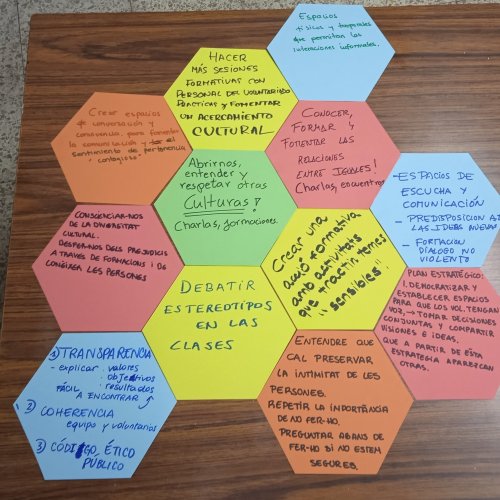 Espacios
físicos y temporales
que permitan las
interaciones informales.
HACER
MÁS SESIONES
FORMATIVAS CON
PERSONAL DEL VOLUNTARIADO
PRÁCTICAS Y FOMENTAR
UN ACERCAMIENTO
CULTURAL
Crear espacios
de conversación y
convivencia, para fomentar
la comunicación y
sentimiento de pertenencia
"contagioso"
CONOCER,
FORMAR Y
FOMENTAR LAS
RELACIONES
ENTRE IGUALES!
Charlas, encuentros
Abrirnos,
entender y
respetar otras
Culturas!
Charlas, formaciones.
- ESPACIOS DE
ESCUCHA Y
COMUNICACIÓN
- PREDISPOSICION A
LAS IDEAS NUEVAS
- FORMACION
DIÁLOGO NO
VIOLENTO
CONSCIENCIAR-NOS
DE LA DIVERSITAT
CULTURAL.
DESPENJAR-NOS DELS PREJUDICIS
A TRAVÉS DE FORMACIONS I DE
CONÈIXER LES PERSONES
Crear una
acció formativa
amb activitats
que tractin temes
"sensibles"
DEBATIR
ESTEREOTIPOS
EN LAS
CLASES
PLAN ESTRATÉGICO:
1. DEMOCRATIZAR Y
ESTABLECER ESPACIOS
PARA QUE LOS VOL. TENGAN
VOZ, → TOMAR DECISIONES
CONJUNTAS Y COMPARTIR
VISIONES E IDEAS.
QUE A PARTIR DE ESTA
ESTRATEGIA APAREZCAN
OTRAS.
① TRANSPARENCIA
- explicar: valores
objetivos
resultados
FÁCIL A ENCONTRAR
② COHERENCIA
equipo y voluntarios
③ CÓDIGO ÉTICO
PÚBLICO
ENTENDRE QUE
CAL PRESERVAR
LA INTIMITAT DE LES
PERSONES.
REPETIR LA IMPORTÀNCIA
DE NO FER-HO.
PREGUNTAR ABANS DE
FER-HO SI NO ESTEM
SEGURES.